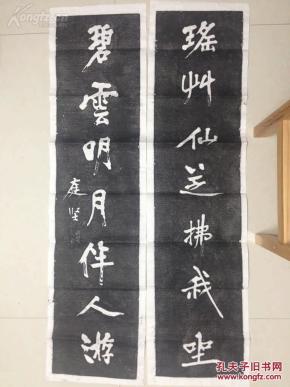 瑤艸仙芝拂我坐
碧雲明月伴人游
庭坚
Kongfz.com
孔夫子旧书网